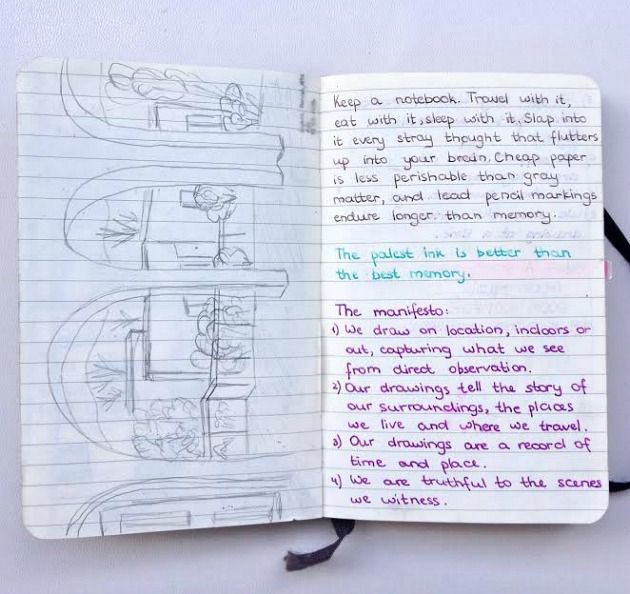 Keep a notebook. Travel with it,
eat with it, sleep with it. Slap into
it every stray thought that flutters
up into your brain. Cheap paper
is less perishable than gray
matter, and lead pencil markings
endure longer than memory.
The palest ink is better than
the best memory.
The manifesto:
1) We draw on location, indoors or
out, capturing what we see
from direct observation.
2) Our drawings tell the story of
our surroundings, the places
we live and where we travel.
3) Our drawings are a record of
time and place.
4) We are truthful to the scenes
we witness.